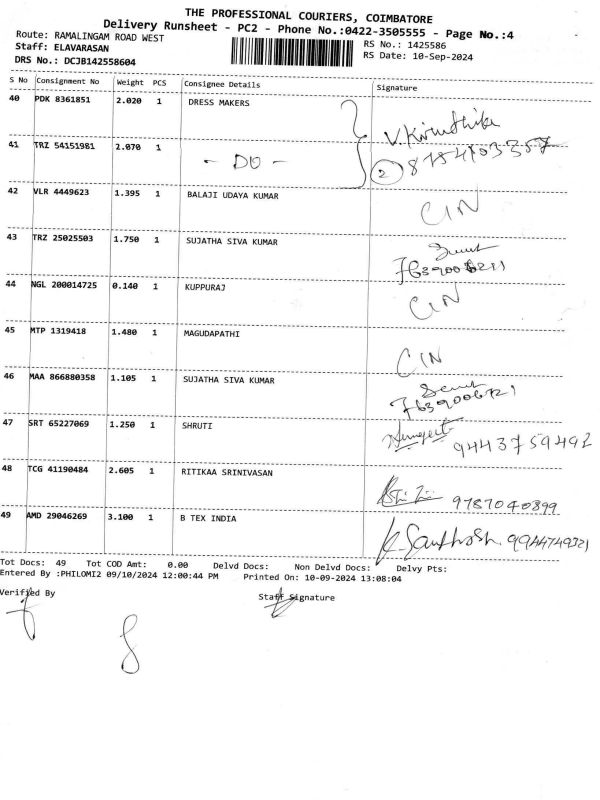 THE PROFESSIONAL COURIERS, COIMBATORE
Delivery Runsheet - PC2 - Phone No.:0422-3505555 - Page No.:4
Route: RAMALINGAM ROAD WEST RS No.: 1425586
Staff: ELAVARASAN RS Date: 10-Sep-2024
DRS No.: DCJB142558604
S No Consignment No Weight PCS Consignee Details Signature
40 PDK 8361851 2.020 1 DRESS MAKERS
41 TRZ 54151981 2.070 1 - DO - V.Kiruthika
2
42 VLR 4449623 1.395 1 BALAJI UDAYA KUMAR CIN
43 TRZ 25025503 1.750 1 SUJATHA SIVA KUMAR
44 NGL 200014725 0.140 1 KUPPURAJ CIN
45 MTP 1319418 1.480 1 MAGUDAPATHI CIN
46 MAA 866880358 1.105 1 SUJATHA SIVA KUMAR
7639006721
47 SRT 65227069 1.250 1 SHRUTI 9443759492
48 TCG 41190484 2.605 1 RITIKAA SRINIVASAN 9787040899
49 AMD 29046269 3.100 1 B TEX INDIA K.Santhosh. 9944749321
Tot Docs: 49 Tot COD Amt: 0.00 Delvd Docs: Non Delvd Docs: Delvy Pts:
Entered By :PHILOMI2 09/10/2024 12:00:44 PM Printed On: 10-09-2024 13:08:04
Verified By Staff Signature